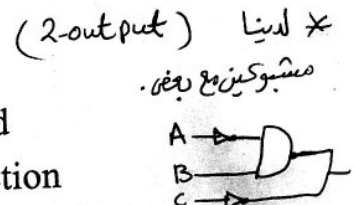 * لدينا (2-output)
مشبوكين مع بعض.
d
tion
A
B
C